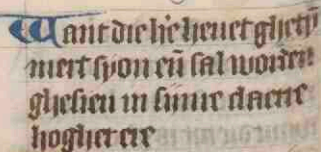 Want die h'e heuet ghetỹ
mert syon eñ sal worden
ghesien in sinre claerre
hogher ere